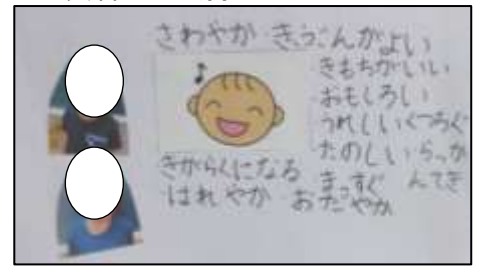 さわやか きぶんがよい
きもちがいい
おもしろい
うれしい くつろぐ
たのしい らっかんてき
きがらくになる まっすぐ
はれやか おだやか